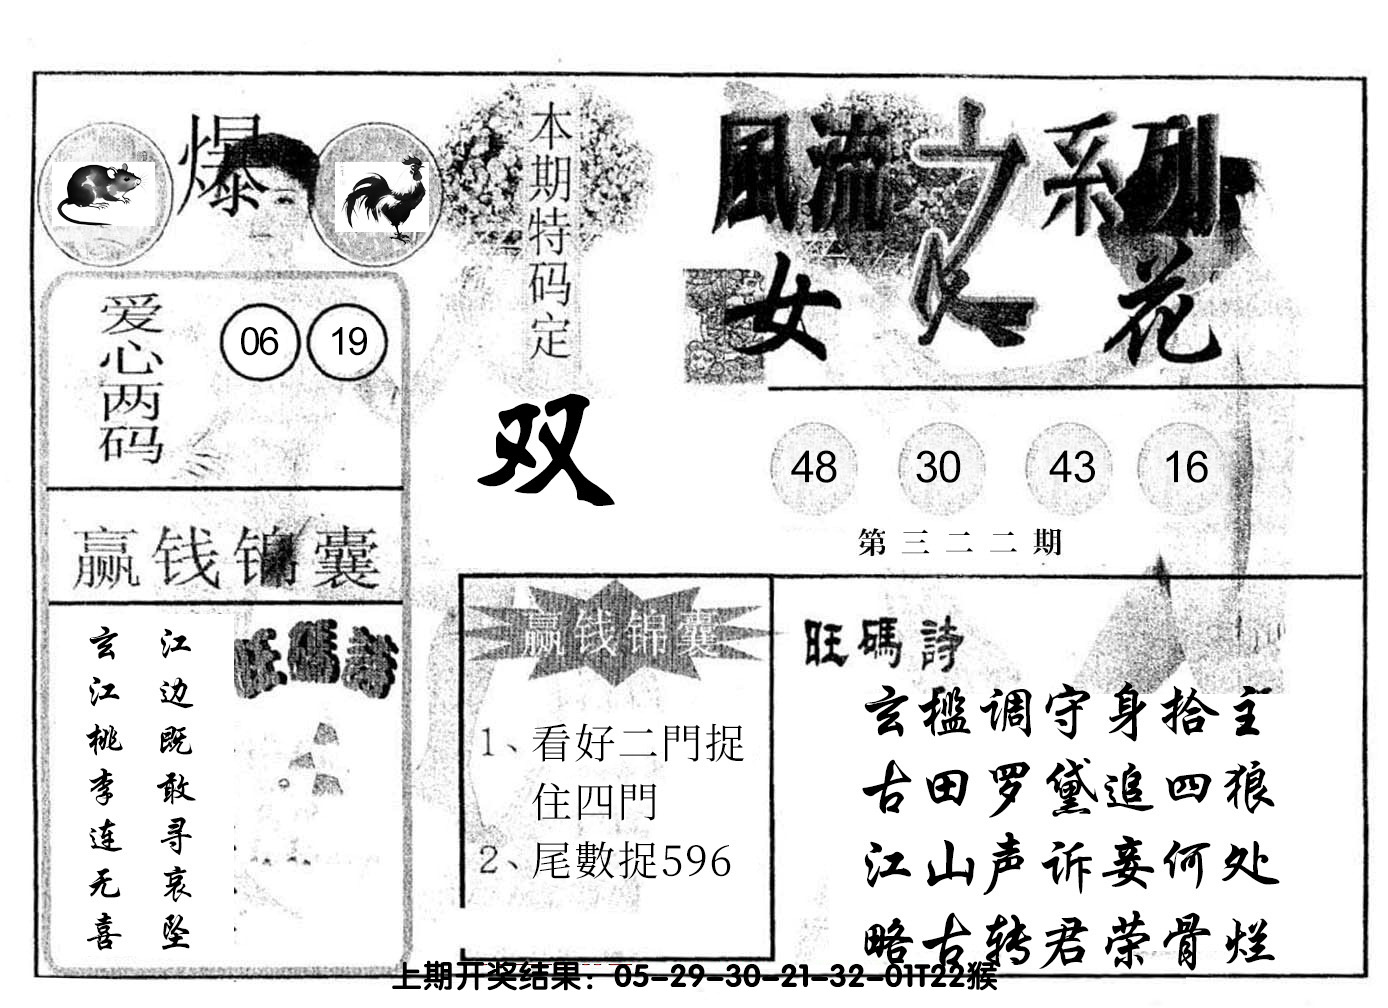 爆
本期特码定
双
風流之系列
女人花
爱心两码
06 19
48 30 43 16
第三二二期
赢钱锦囊
江边既敢寻哀坠
玄江桃李连无喜
旺碼詩
赢钱锦囊
1、看好二門捉
住四門
2、尾數捉596
旺碼詩
玄槛调守身拾主
古田罗黛追四狼
江山声诉妾何处
略古转君荣骨烂
上期开奖结果：05-29-30-21-32-01T22猴